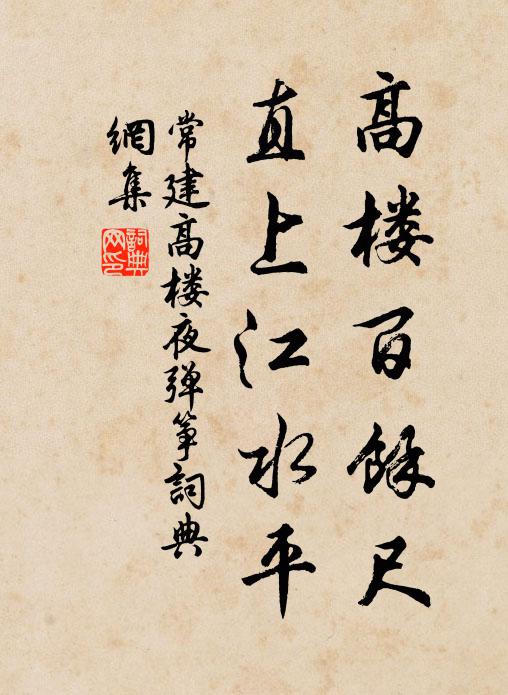 高楼百餘尺
直上江水平
常建高楼夜弹筝詞典
網集
詞典网印